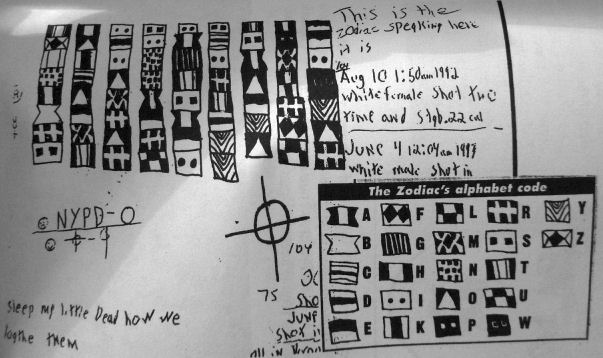 This is the
Zodiac speaking here
it is
Aug 10 1:50am 1992
white female shot two
time and stab .22 cal
JUNE 4 12:04am 1993
white male shot in
NYPD-0
9
104
75
sho
JUNE
shot i
all in
sleep my little Dead how we
lothe them
The Zodiac's alphabet code
A F L R Y
B G M S Z
C H N T
D I O U
E K P W